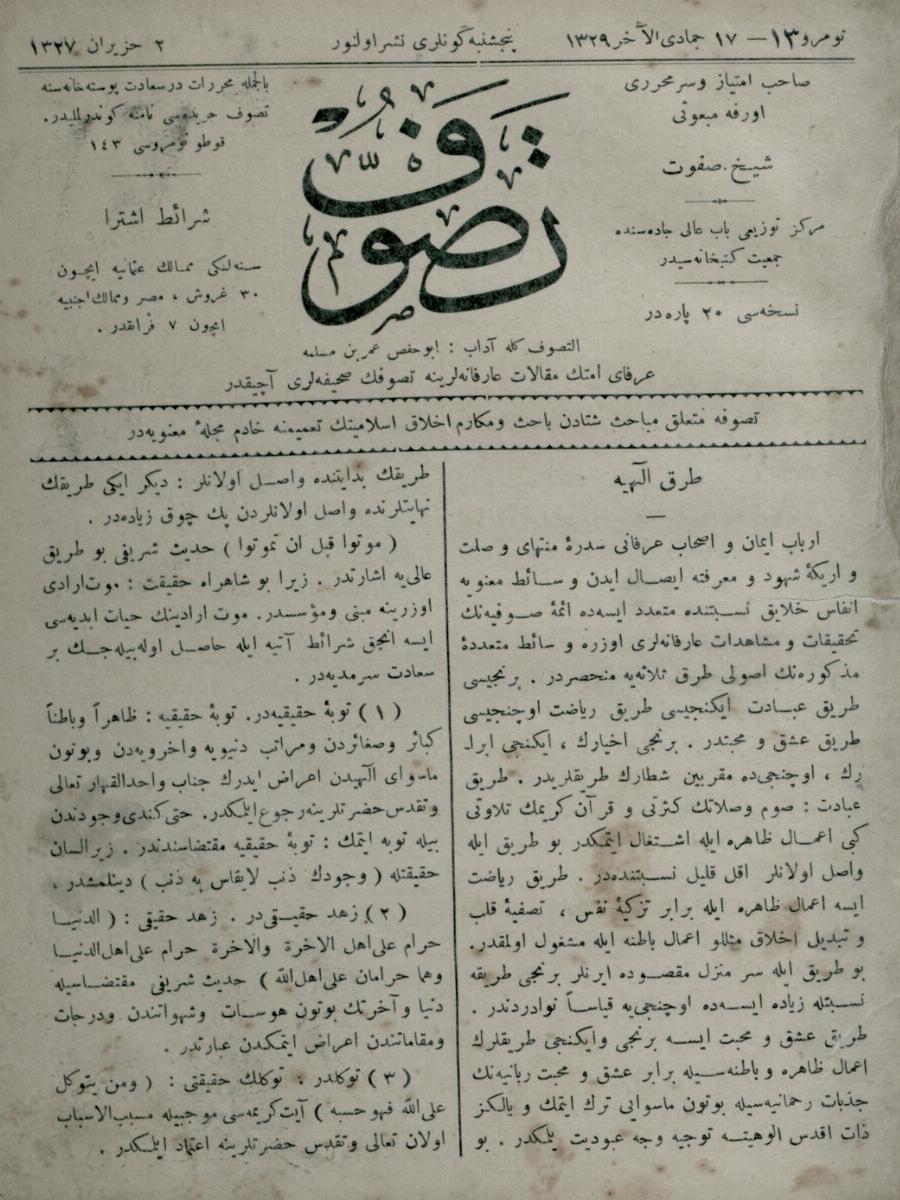 نومرو ١٣ — ١٧ جمادى الآخر ١٣٢٩
پنجشنبه گونلرى نشر اولنور
٢ حزيران ١٣٢٧
صاحب امتياز وسرمحررى
اورفه مبعوثى
شيخ صفوت
مركز توزيعى باب عالى جاده‌سنده
جمعيت كتبخانه‌سيدر
نسخه‌سى ٢٠ پاره‌در
تصوف
بالجمله محررات درسعادت پوسته‌خانه‌سنه
تصوف جريده‌سى نامنه كوندرلمليدر.
قوطو نومروسى ١٤٣
شرائط اشترا
سنه‌لكى ممالك عثمانيه ايچون
٣٠ غروش ، مصر وممالك اجنبيه
ايچون ٧ فرانقدر .
التصوف كله آداب : ابوحفص عمر بن مسلمه
عرفاى امتك مقالات عارفانه‌لرينه تصوفك صحيفه‌لرى آچيقدر
تصوفه متعلق مباحث شتادن باحث ومكارم اخلاق اسلاميتك تعميمنه خادم مجلهٔ معنويه‌در
طرق الٓهيه
ارباب ايمان و اصحاب عرفانى سدرهٔ منتهاى و صلت
و اريكهٔ شهود و معرفته ايصال ايدن و سائط معنويه
انفاس خلايق نسبتنده متعدد ايسه‌ده ائمهٔ صوفيه‌نك
تحقيقات و مشاهدات عارفانه‌لرى اوزره و سائط متعددهٔ
مذكوره‌نك اصولى طرق ثلاثه‌يه منحصردر . برنجيسى
طريق عبادت ايكنجيسى طريق رياضت اوچنجيسى
طريق عشق و محبتدر . برنجى اخيارك ، ايكنجى ابرا-
رك ، اوچنجى‌ده مقربين شطارك طريقلريدر . طريق
عبادت : صوم وصلاتك كثرتى و قرآن كريمك تلاوتى
كبى اعمال ظاهره ايله اشتغال ايتمكدر بو طريق ايله
واصل اولانلر اقل قليل نسبتنده‌در . طريق رياضت
ايسه اعمال ظاهره ايله برابر تزكيهٔ نفس ، تصفيهٔ قلب
و تبديل اخلاق مثللو اعمال باطنه ايله مشغول اولمقدر.
بو طريق ايله سر منزل مقصوده ايرنلر برنجى طريقه
نسبتله زياده ايسه‌ده اوچنجى‌يه قياساً نوادردندر .
طريق عشق و محبت ايسه برنجى وايكنجى طريقلرك
اعمال ظاهره و باطنه‌سيله برابر عشق و محبت ربانيه‌نك
جذبات رحمانيه‌سيله بوتون ماسوايى ترك ايتمك و يالكز
ذات اقدس الوهيته توجيه وجه عبوديت ايلمكدر . بو
طريقك بدايتنده واصل اولانلر : ديكر ايكى طريقك
نهايتلرنده واصل اولانلردن پك چوق زياده‌در .
( موتوا قبل ان تموتوا ) حديث شريفى بو طريق
عالى‌يه اشارتدر . زيرا بو شاهراه حقيقت : موت ارادى
اوزرينه مبنى ومؤسسدر. موت ارادينك حيات ابديه‌سى
ايسه انجق شرائط آتيه ايله حاصل اوله‌بيله‌جك بر
سعادت سرمديه‌در .
( ١ ) توبهٔ حقيقيه‌در. توبهٔ حقيقيه : ظاهراً وباطناً
كبائر وصغائردن ومراتب دنيويه واخرويه‌دن وبوتون
ماسواى الٓهيدن اعراض ايدرك جناب واحدالقهار تعالى
وتقدس حضرتلرينه رجوع ايلمكدر. حتى كندى وجودندن
بيله توبه ايتمك : توبهٔ حقيقيه مقتضاسندندر . زيرالسان
حقيقتله ( وجودك ذنب لايقاس به ذنب ) دينلمشدر ،
( ٢ ) زهد حقيقى‌در . زهد حقيقى : ( الدنيا
حرام على اهل الاخرة والاخرة حرام على اهل الدنيا
وهما حرامان على اهل‌الله ) حديث شريفى مقتضاسيله
دنيا و آخرتك بوتون هوسات وشهواتندن ودرجات
ومقاماتندن اعراض ايتمكدن عبارتدر .
( ٣ ) توكلدر : توكلك حقيقتى : ( ومن يتوكل
على الله فهو حسبه ) آيت كريمه‌سى موجبيله مسبب‌الاسباب
اولان تعالى وتقدس حضرتلرينه اعتماد ايلمكدر .